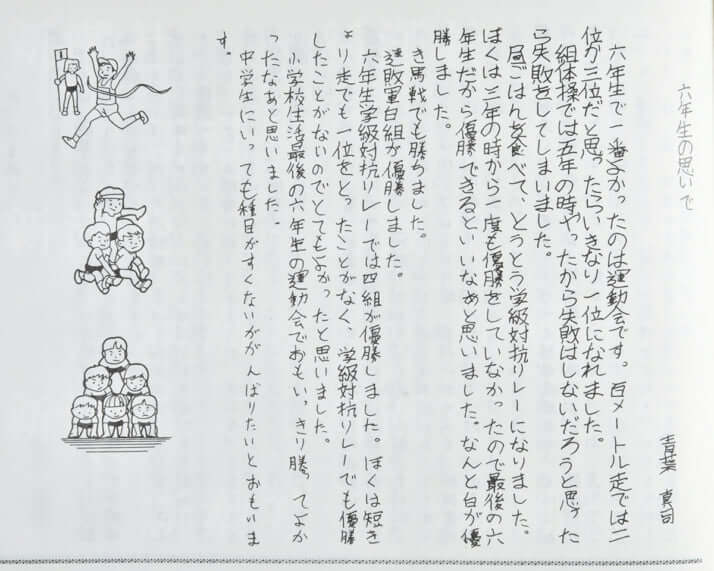 六年生の思いで
青葉 真司
六年生で一番よかったのは運動会です。百メートル走では二
位か三位だと思ったらいきなり一位になれました。
組体操では五年の時やったから失敗はしないだろうと思った
ら失敗をしてしまいました。
昼ごはんを食べて、とうとう学級対抗リレーになりました。
ぼくは三年の時から一度も優勝をしていなかったので最後の六
年生だから優勝できるといいなあと思いました。なんと白が優
勝しました。
き馬戦でも勝ちました。
連敗軍白組が優勝しました。
六年生学級対抗リレーでは四組が優勝しました。ぼくは短き
より走でも一位をとったことがなく、学級対抗リレーでも優勝
したことがないのでとてもよかったと思いました。
小学校生活最後の六年生の運動会でおもいっきり勝ってよか
ったなあと思いました。
中学生にいっても種目がすくないががんばりたいとおもいま
す。
1